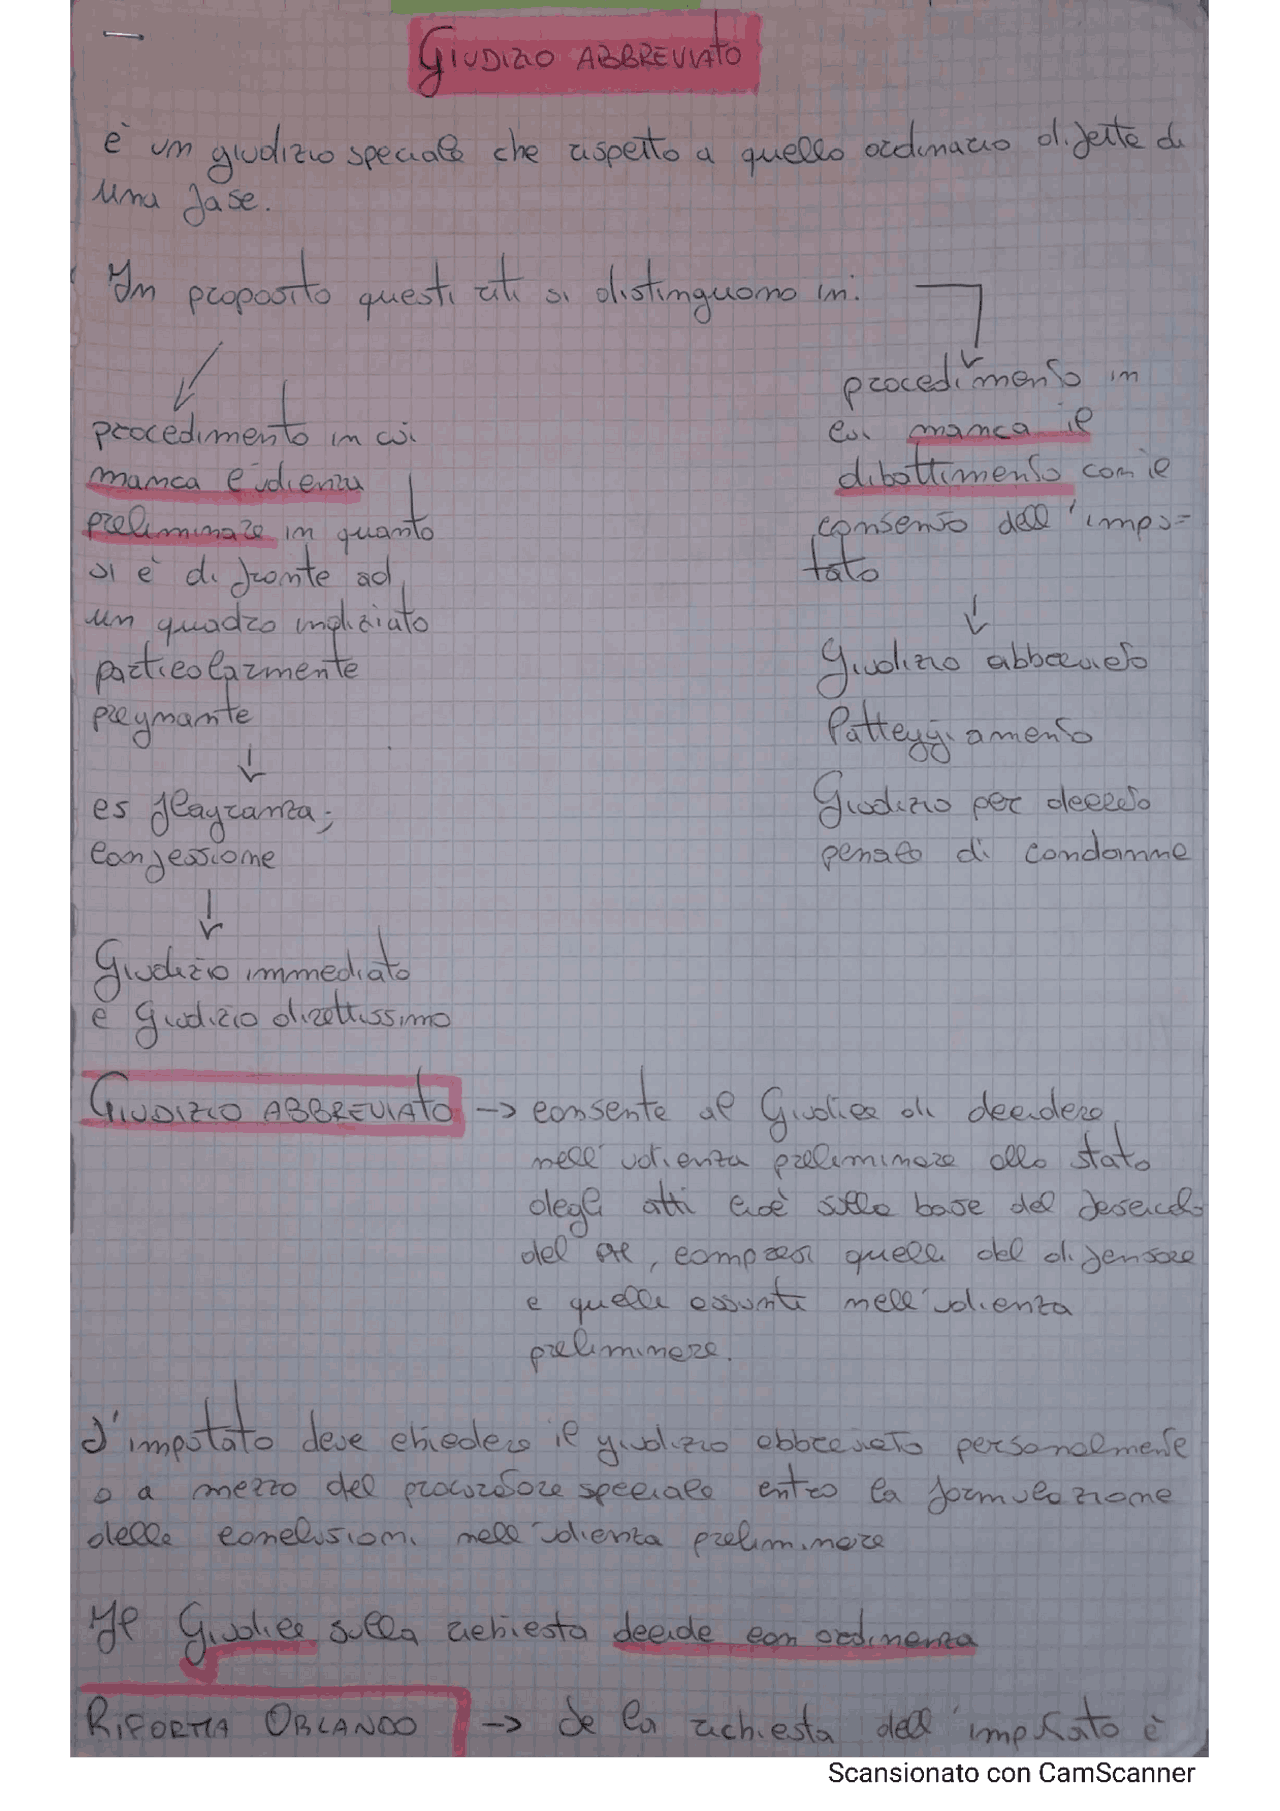 GIUDIZIO ABBREVIATO
è un giudizio speciale che rispetto a quello ordinario difetta di
una fase.
In proposito questi riti si distinguono in:
procedimento in cui
manca l'udienza
preliminare in quanto
si è di fronte ad
un quadro indiziato
particolarmente
pregnante
es flagranza;
confessione
Giudizio immediato
e Giudizio direttissimo
procedimento in
cui manca il
dibattimento con il
consenso dell'impu=
tato
Giudizio abbreviato
Patteggiamento
Giudizio per decreto
penale di condanna
GIUDIZIO ABBREVIATO -> consente al Giudice di decidere
nell'udienza preliminare allo stato
degli atti cioè sulla base del fascicolo
del PM, compresi quelli del difensore
e quelle assunte nell'udienza
preliminare.
L'imputato deve chiedere il giudizio abbreviato personalmente
o a mezzo del procuratore speciale entro la formulazione
delle conclusioni nell'udienza preliminare
Il Giudice sulla richiesta decide con ordinanza
RIFORMA ORLANDO -> Se la richiesta dell'imputato è
Scansionato con CamScanner